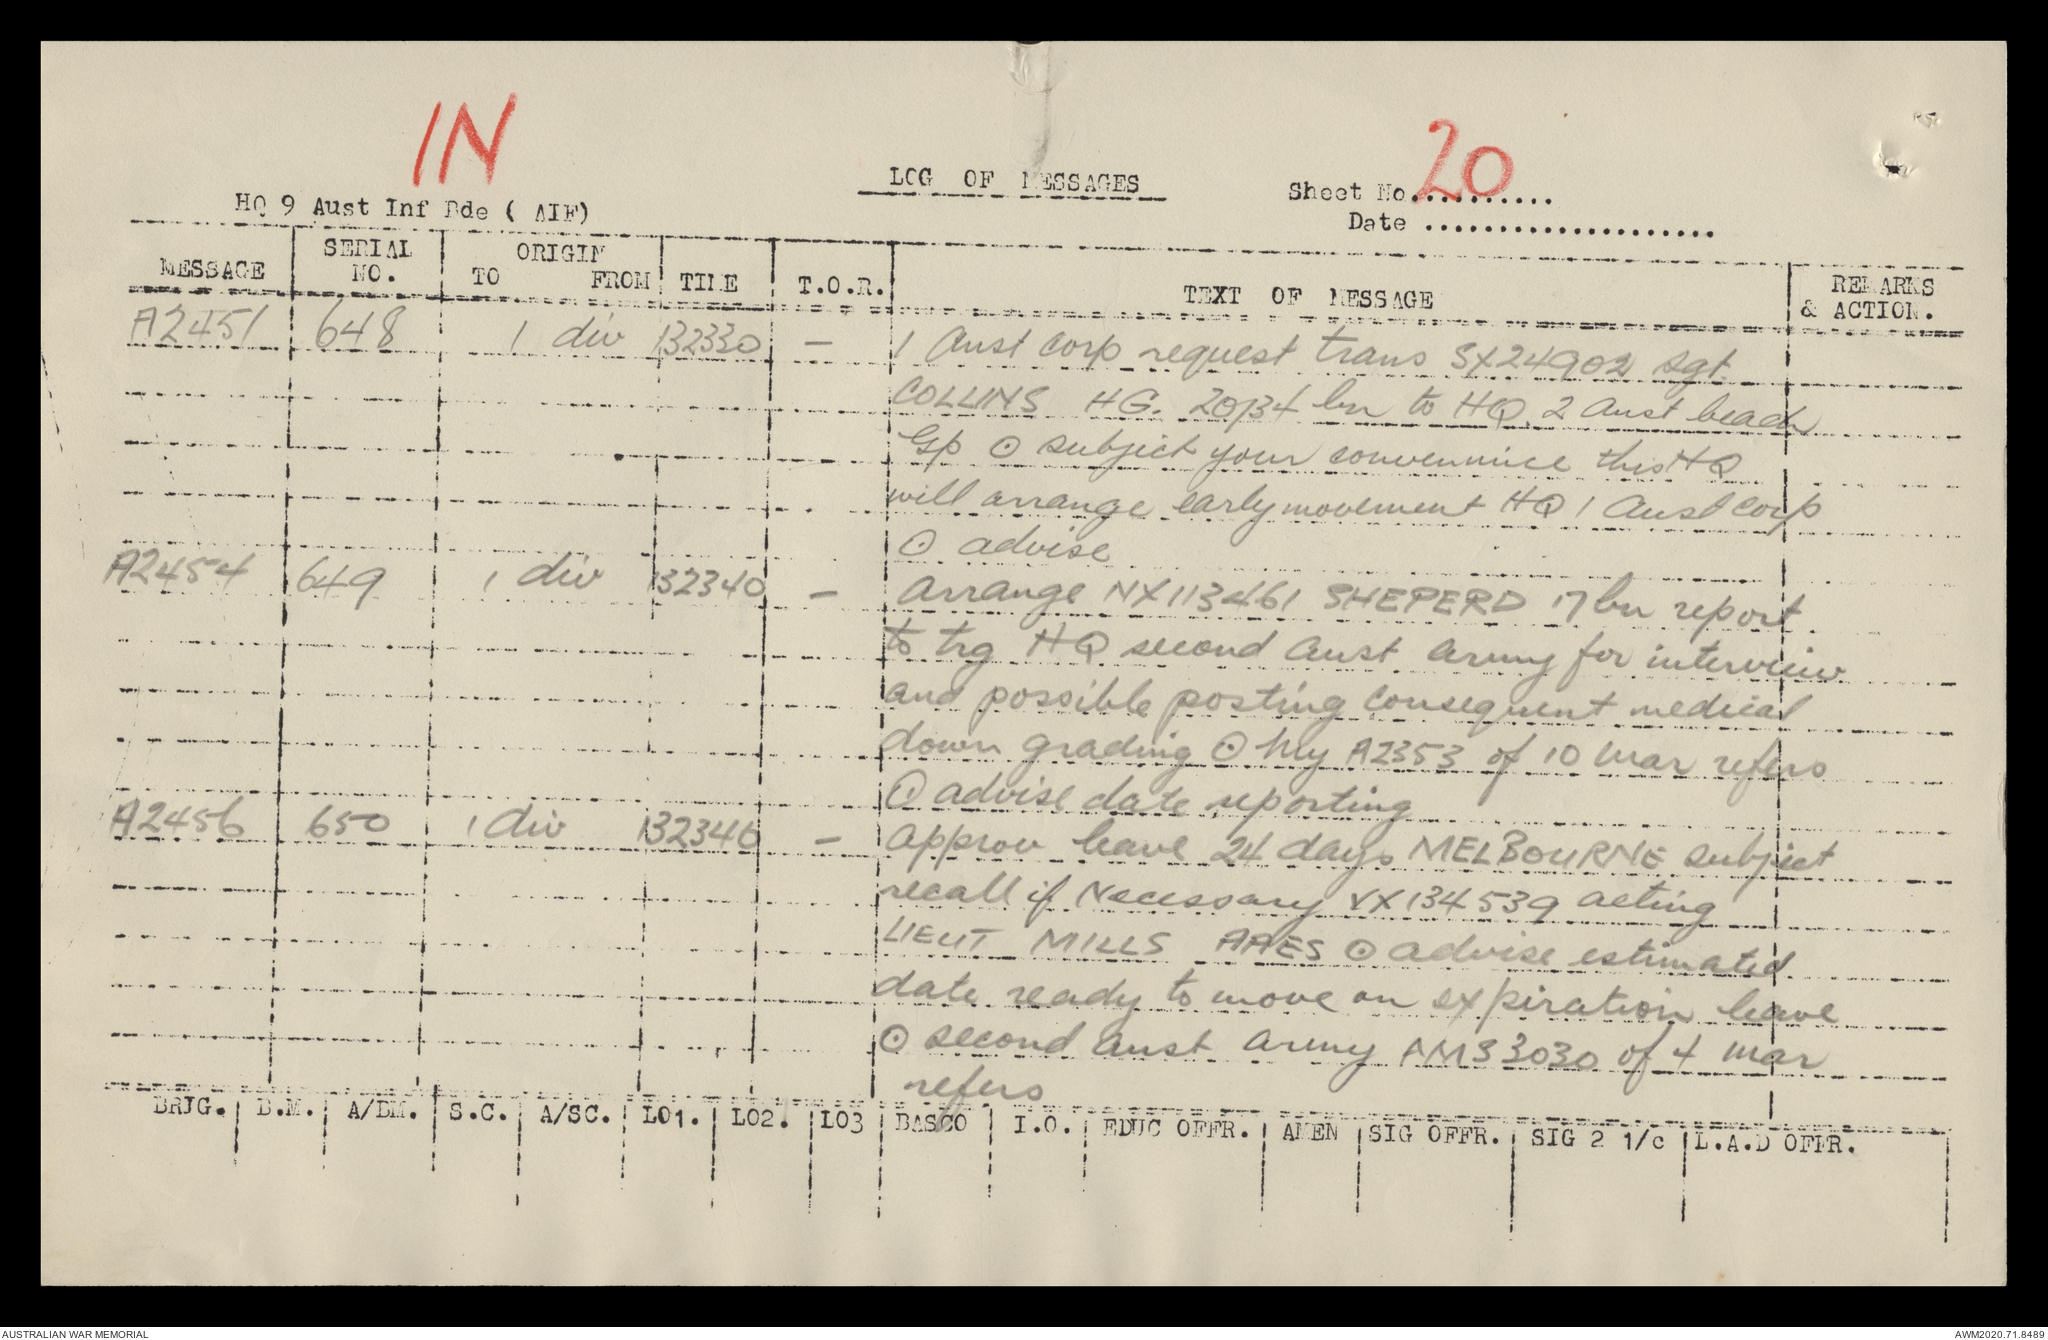 IN
LOG OF MESSAGES
Sheet No.......... 20
HQ 9 Aust Inf Bde ( AIF)
Date ....................
MESSAGE SERIAL NO. ORIGIN TO FROM TIME T.O.R. TEXT OF MESSAGE REMARKS & ACTION.
A2451 648 1 div 132330 — 1 Aust Corp request trans SX24902 Sgt
COLLINS HG. 20/34 bn to HQ 2 Aust beach
Gp ⊙ subject your convennice this HQ
will arrange early movement HQ 1 Aust Corp
⊙ advise
A2454 649 1 div 132340 — arrange NX113461 SHEPERD 17 bn report
to trg HQ second Aust Army for interview
and possible posting consequent medical
down grading ⊙ My A2353 of 10 Mar refers
⊙ advise date reporting
A2456 650 1 div 132346 — approv leave 24 days MELBOURNE subject
recall if Necessary VX134539 acting
LIEUT MILLS AAES ⊙ advise estimated
date ready to move on expiration leave
⊙ second Aust Army AM33030 of 4 Mar
refers
BRIG. B.M. A/BM. S.C. A/SC. LO1. LO2. LO3 BASCO I.O. EDUC OFFR. AMEN SIG OFFR. SIG 2 1/c L.A.D OFFR.
AUSTRALIAN WAR MEMORIAL
AWM2020.71.8489